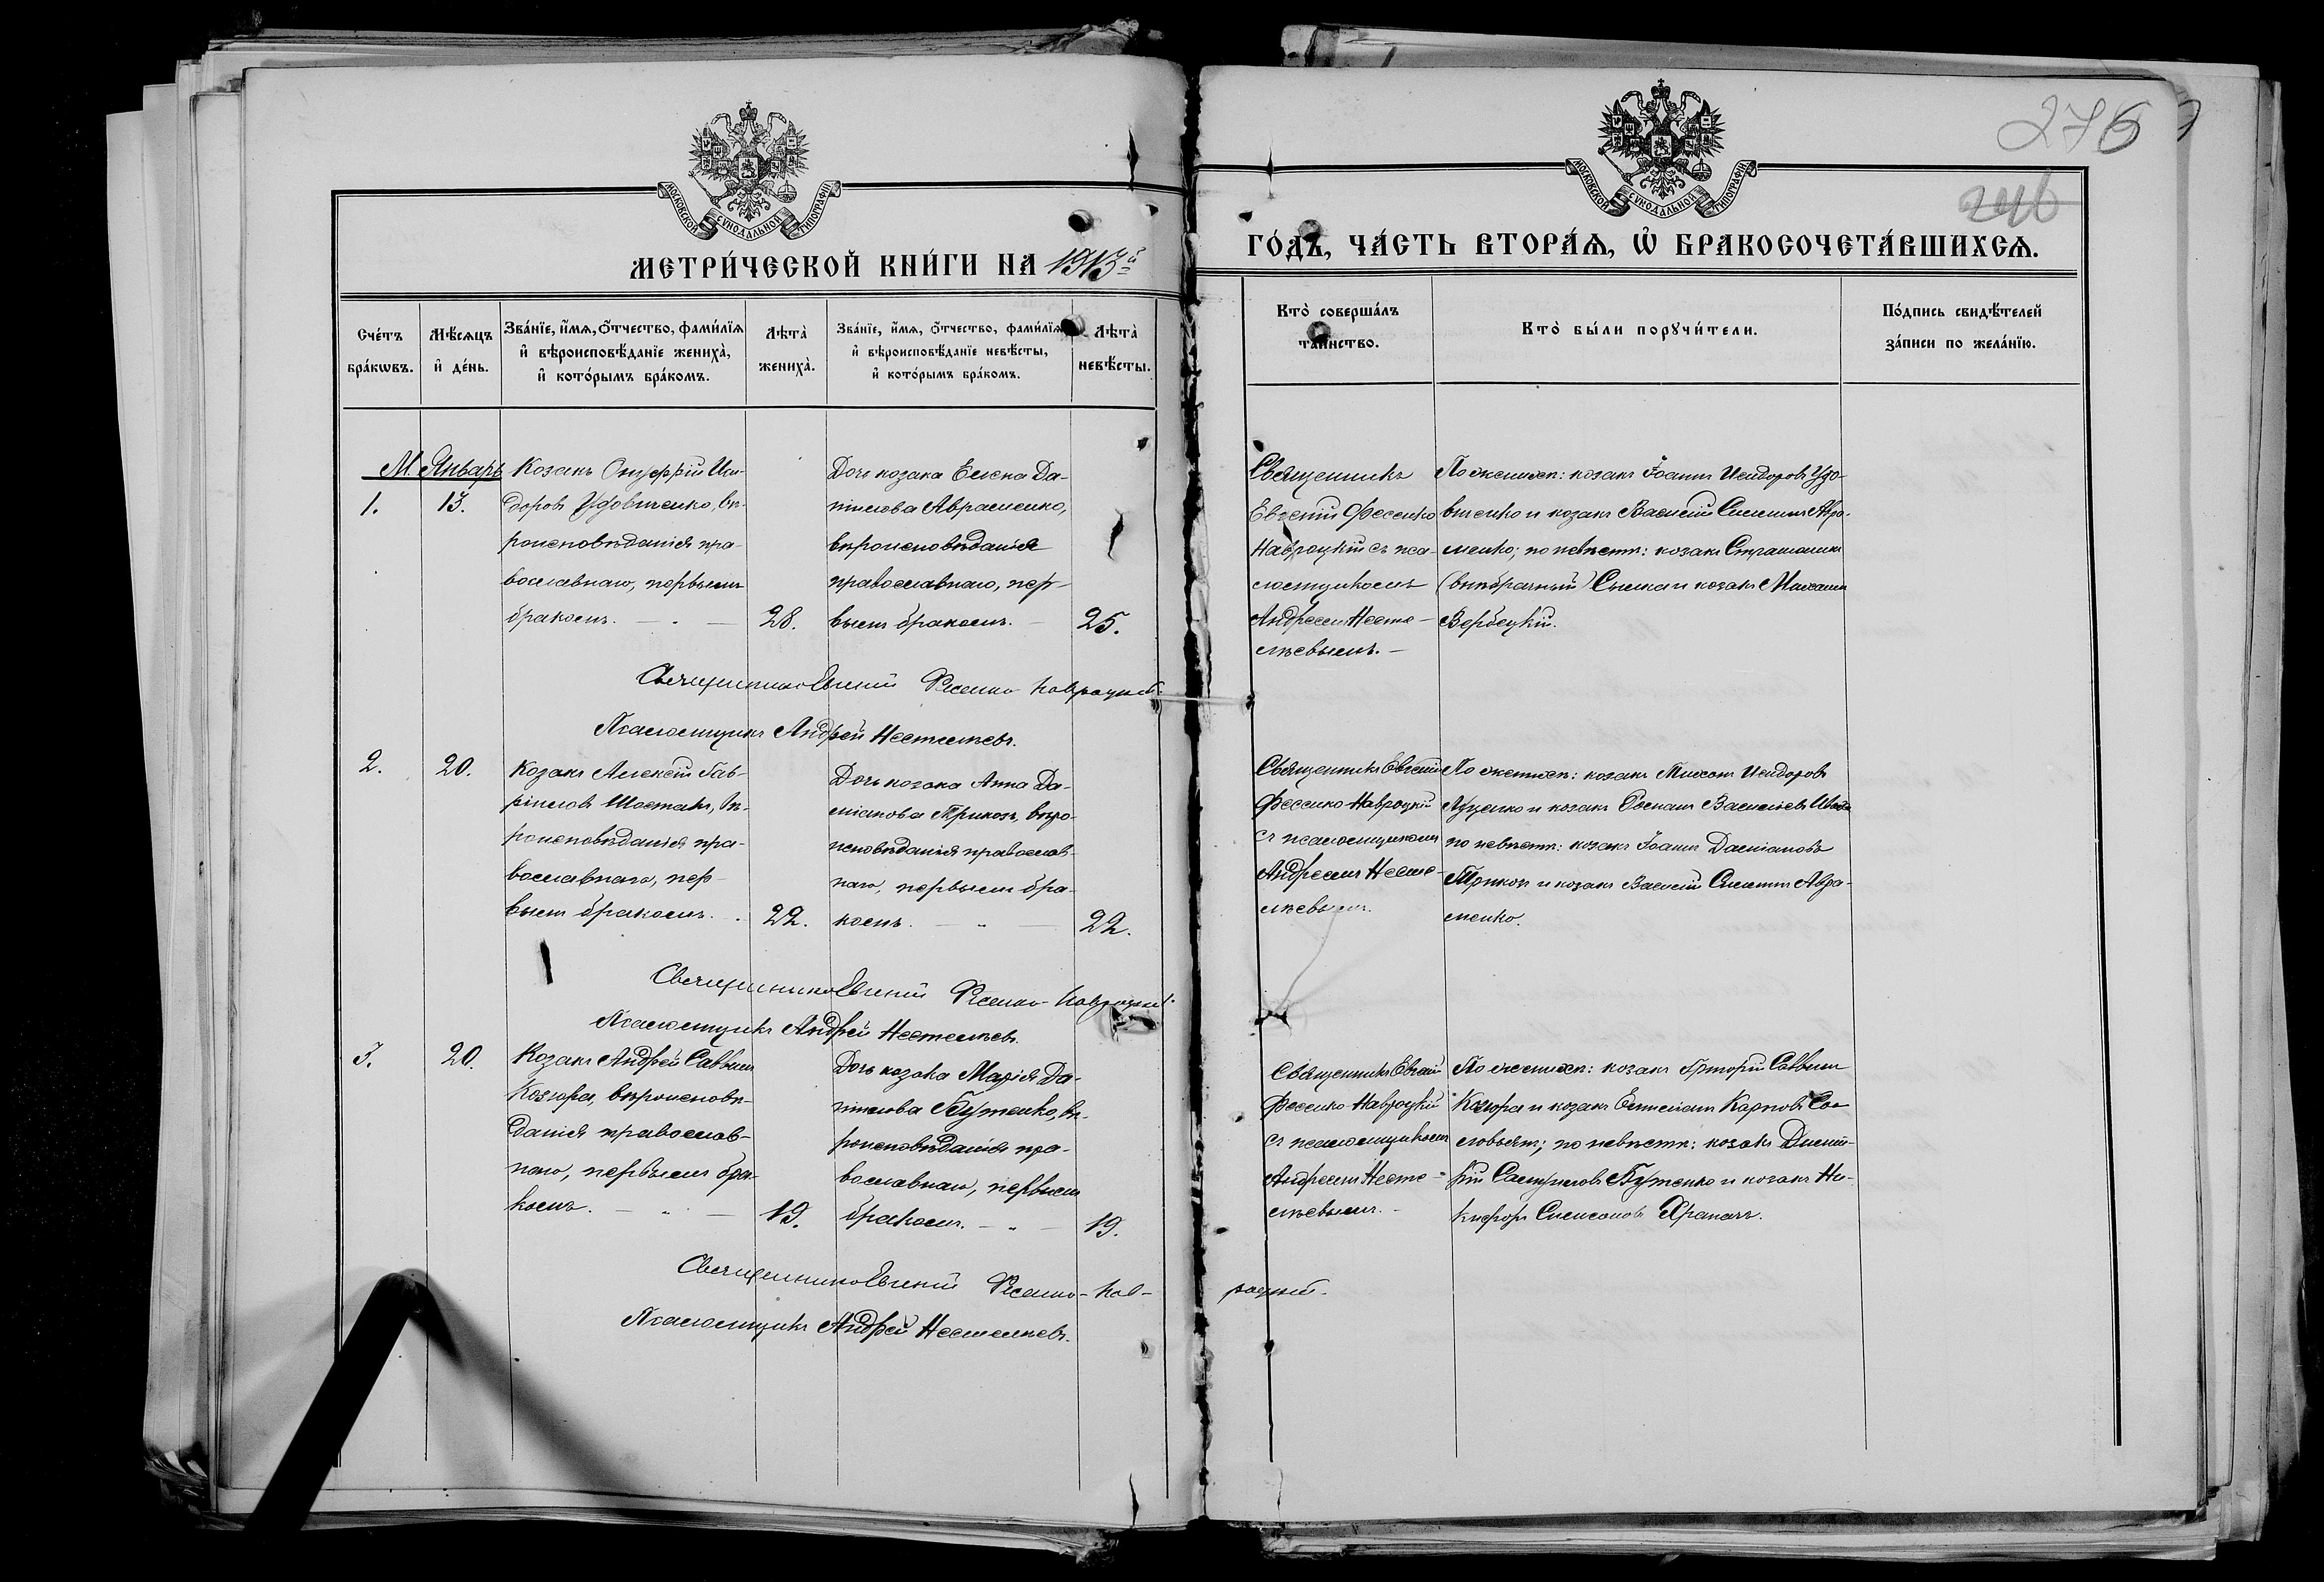 276
246
МОСКОВСКОЙ СѴНОДАЛЬНОЙ ТИПОГРАФІИ
МОСКОВСКОЙ СѴНОДАЛЬНОЙ ТИПОГРАФІИ
МЕТРИ́ЧЕСКОЙ КНИ́ГИ НА 1913й
ГО́ДЪ, ЧА́СТЬ ВТОРА́Ѧ, Ѽ БРАКОСОЧЕТА́ВШИХСѦ.
Сче́тъ бра́кѡвъ.
Мѣ́сѧцъ и҆ де́нь.
Зва́нїе, и҆́мѧ, ѻ҆́тчество, фами́лїѧ
и҆ вѣроисповѣ́данїе жениха̀,
и҆ кото́рымъ бра́комъ.
Лѣта̀ жениха̀.
Зва́нїе, и҆́мѧ, ѻ҆́тчество, фами́лїѧ
и҆ вѣроисповѣ́данїе невѣ́сты,
и҆ кото́рымъ бра́комъ.
Лѣта̀ невѣ́сты.
Кто̀ соверша́лъ
та́инство.
Кто̀ бы́ли порꙋчи́тели.
По́дпись свидѣ́телей
за́писи по жела́нїю.
М. Январь
1.
13.
Козакъ Онуфрій Иси-
доровъ Удовиченко, вѣ-
роисповѣданія пра-
вославнаго, первымъ
бракомъ.
28.
Дочь козака Елена Да-
ніилова Авраменко,
вѣроисповѣданія
православнаго, пер-
вымъ бракомъ.
25.
Священникъ
Евгеній Фесенко
Навроцкій съ пса-
ломщикомъ
Андреемъ Несте-
лѣевымъ.
По женихѣ: козакъ Іоаннъ Исидоровъ Удо-
виченко и козакъ Василій Симеоновъ Авра-
менко; по невѣстѣ: козакъ
и козакъ Михаилъ
Вербецкій.
Священникъ Евгеній Фесенко-Навроцкій.
Псаломщикъ Андрей Нестелѣевъ.
2.
20.
Козакъ Алексій Гав-
ріиловъ Шостакъ, вѣ-
роисповѣданія пра-
вославнаго, пер-
вымъ бракомъ.
22.
Дочь козака Анна Да-
міанова Трикозъ, вѣро-
исповѣданія православ-
наго, первымъ бра-
комъ.
22.
Священникъ Евгеній
Фесенко-Навроцкій
съ псаломщикомъ
Андреемъ Несте-
лѣевымъ.
По женихѣ: козакъ Исидоровъ
Луценко и козакъ Васильевъ
по невѣстѣ: козакъ Іоаннъ Даміановъ
Трикозъ и козакъ Василій Симеоновъ Авра-
менко.
Священникъ Евгеній Фесенко-Навроцкій.
Псаломщикъ Андрей Нестелѣевъ.
3.
20.
Козакъ Андрей Саввинъ
Козюра, вѣроисповѣ-
данія православ-
наго, первымъ бра-
комъ.
19.
Дочь козака Марія Да-
ніилова Бутенко, вѣ-
роисповѣданія пра-
вославнаго, первымъ
бракомъ.
19.
Священникъ Евгеній
Фесенко-Навроцкій
съ псаломщикомъ
Андреемъ Несте-
лѣевымъ.
По женихѣ: козакъ Григорій Саввинъ
Козюра и козакъ Карповъ Со-
ловьянъ; по невѣстѣ: козакъ Дими-
трій Самуиловъ Бутенко и козакъ Ни-
кифоръ Симеоновъ Храпачъ.
Священникъ Евгеній Фесенко-Нав-
роцкій.
Псаломщикъ Андрей Нестелѣевъ.